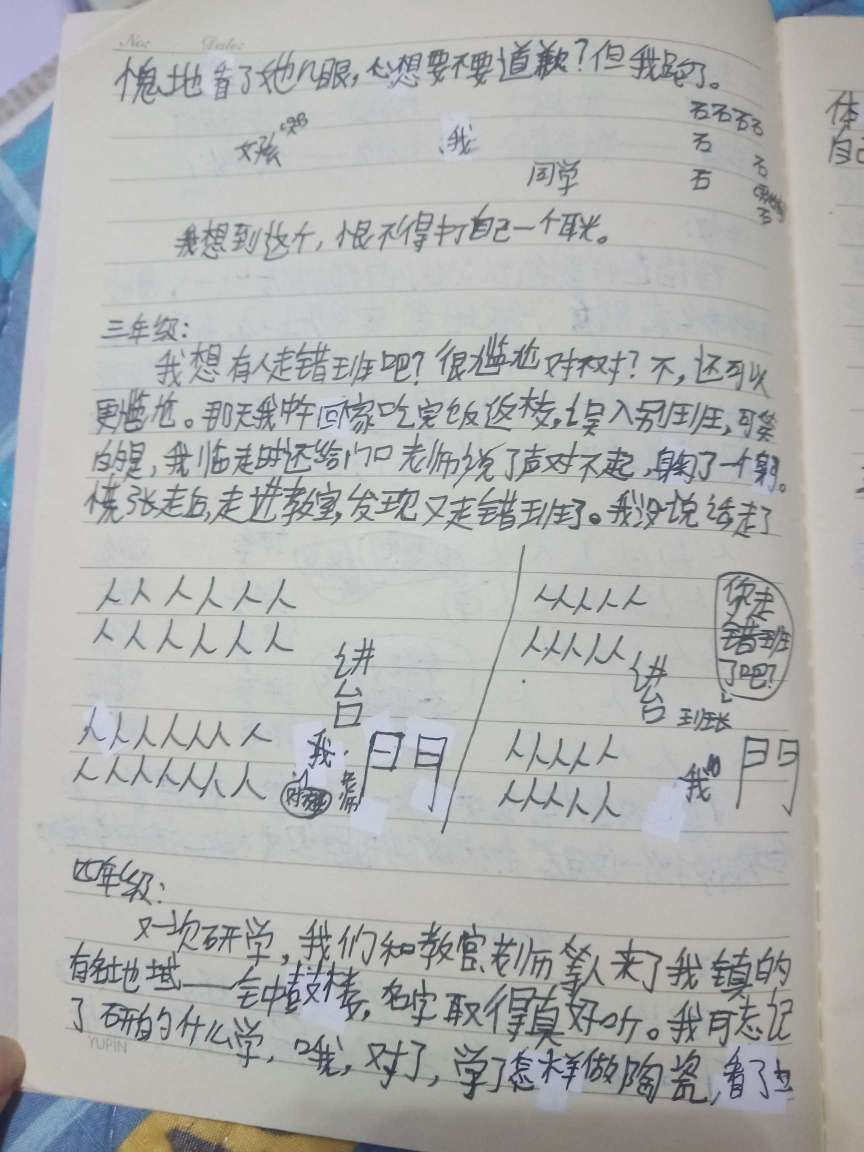 No: Date:
愧地看了她几眼,心想要不要道歉?但我跑了。
石石石石
女孩 我 石
石
同学 石
石
我想到这个,恨不得打自己一个耳光。
三年级:
我想有人走错班吧?很尴尬对不对?不,还可以
更尴尬。那天我中午回家吃完饭返校,误入别班,可笑
的是,我临走时还给门口老师说了声对不起,鞠了一个躬。
慌张走后,走进教室,发现又走错班了。我没说话走了
人人人人人人
人人人人人人
讲台
人人人人人人人
人人人人人人人
我
对不起
老师
門
人人人人人
人人人人人
讲台
你走
错班
了吧?
班长
人人人人人
人人人人人
我
門
四年级:
一次研学,我们和教官、老师等人来了我镇的
有名地域——钟鼓楼,名字取得真好听。我可忘记
了研的什么学,哦,对了,学了怎样做陶瓷,看了
YUPIN
体
自己